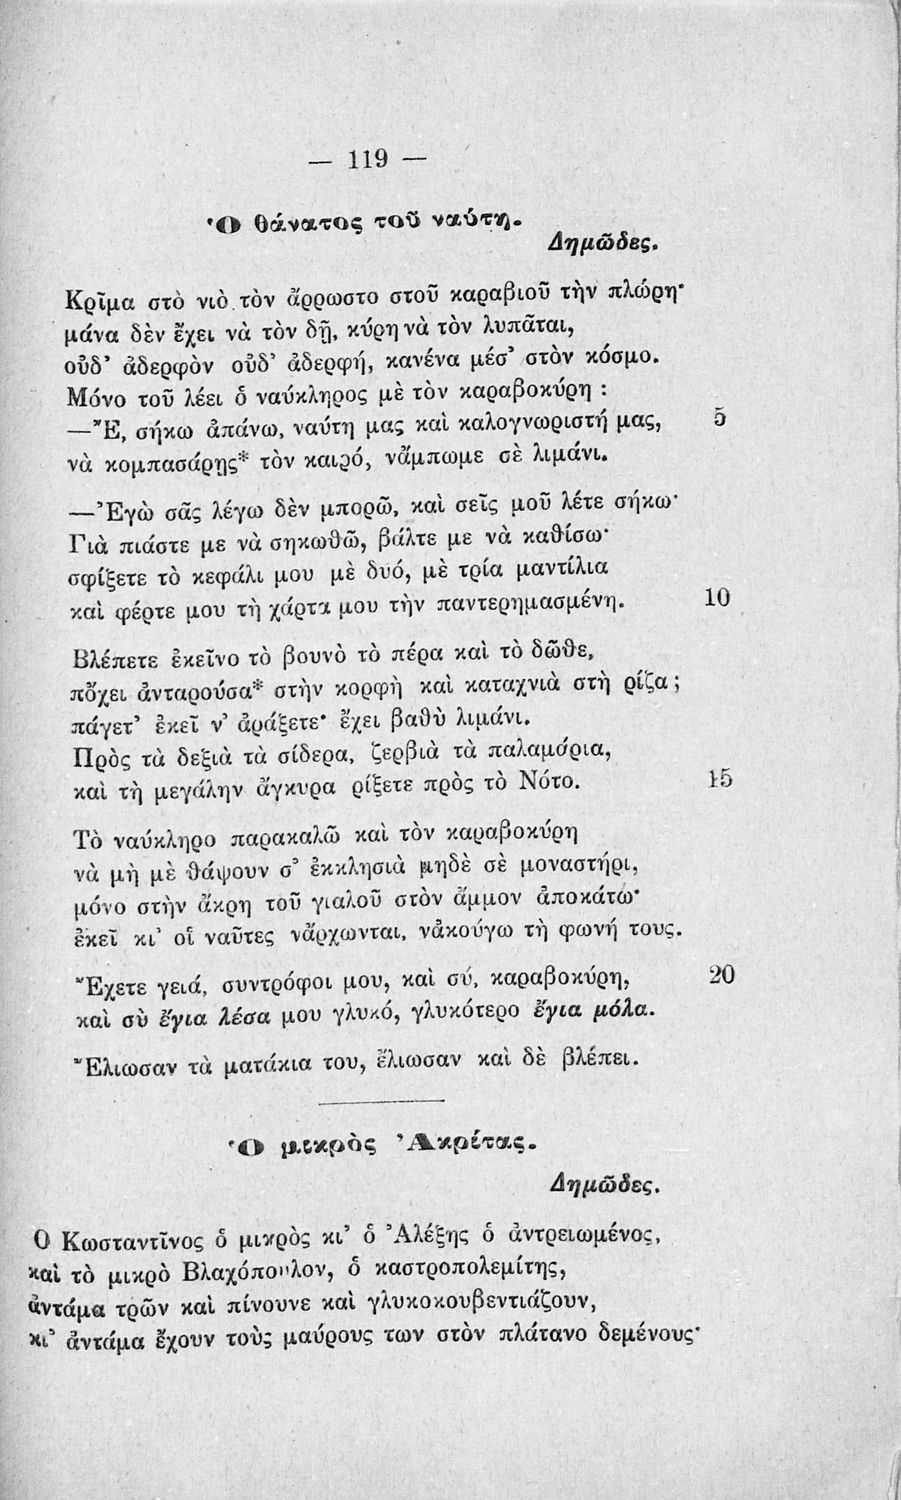 — 119 —
Ὁ θάνατος τοῦ ναύτη.
Δημῶδες.
Κρῖμα στὸ νιὸ τὸν ἄρρωστο στοῦ καραβιοῦ τὴν πλώρη·
μάνα δὲν ἔχει νὰ τὸν δῇ, κύρη νὰ τὸν λυπᾶται,
οὐδ’ ἀδερφὸν οὐδ’ ἀδερφή, κανένα μέσ’ στὸν κόσμο.
Μόνο τοῦ λέει ὁ ναύκληρος μὲ τὸν καραβοκύρη :
—Ἔ, σήκω ἀπάνω, ναύτη μας καὶ καλογνωριστή μας, 5
νὰ κομπασάρῃς* τὸν καιρό, νἄμπωμε σὲ λιμάνι.
—Ἐγὼ σᾶς λέγω δὲν μπορῶ, καὶ σεῖς μοῦ λέτε σήκω·
Γιὰ πιάστε με νὰ σηκωθῶ, βάλτε με νὰ καθίσω·
σφίξετε τὸ κεφάλι μου μὲ δυό, μὲ τρία μαντίλια
καὶ φέρτε μου τὴ χάρτα μου τὴν παντερημασμένη. 10
Βλέπετε ἐκεῖνο τὸ βουνὸ τὸ πέρα καὶ τὸ δῶθε,
πὄχει ἀνταρούσα* στὴν κορφὴ καὶ καταχνιὰ στὴ ρίζα;
πάγετ’ ἐκεῖ ν’ ἀράξετε· ἔχει βαθὺ λιμάνι.
Πρὸς τὰ δεξιὰ τὰ σίδερα, ζερβιὰ τὰ παλαμάρια,
καὶ τὴ μεγάλην ἄγκυρα ρίξετε πρὸς τὸ Νότο. 15
Τὸ ναύκληρο παρακαλῶ καὶ τὸν καραβοκύρη
νὰ μὴ μὲ θάψουν σ’ ἐκκλησιὰ μηδὲ σὲ μοναστήρι,
μόνο στὴν ἄκρη τοῦ γιαλοῦ στὸν ἄμμον ἀποκάτω·
ἐκεῖ κι’ οἱ ναῦτες νἄρχωνται, νἀκούγω τὴ φωνή τους.
Ἔχετε γειά, συντρόφοι μου, καὶ σύ, καραβοκύρη, 20
καὶ σὺ ἔγια λέσα μου γλυκό, γλυκότερο ἔγια μόλα.
Ἔλιωσαν τὰ ματάκια του, ἔλιωσαν καὶ δὲ βλέπει.
Ὁ μικρὸς Ἀκρίτας.
Δημῶδες.
Ο Κωσταντῖνος ὁ μικρὸς κι’ ὁ Ἀλέξης ὁ ἀντρειωμένος,
καὶ τὸ μικρὸ Βλαχόπουλον, ὁ καστροπολεμίτης,
ἀντάμα τρῶν καὶ πίνουνε καὶ γλυκοκουβεντιάζουν,
κι’ ἀντάμα ἔχουν τοὺς μαύρους των στὸν πλάτανο δεμένους·